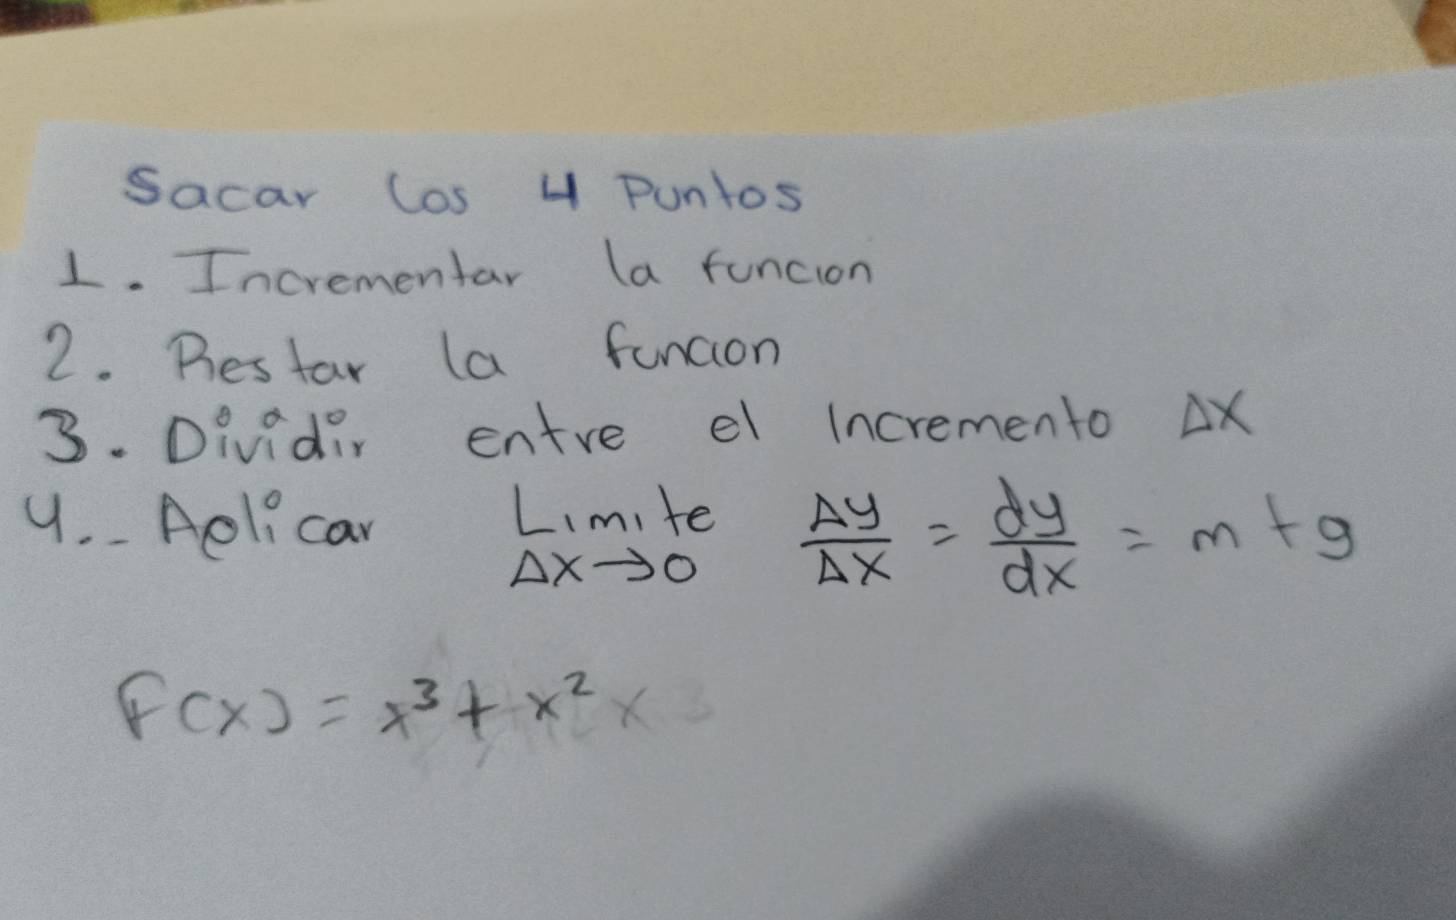 Sacar los 4 Puntos
1. Incrementar la funcion
2. Restar la funcion
3. Dividir entre el Incremento ΔX
4.. Aplicar Limite ΔX→0 Δy/ΔX = dy/dx = m tg
F(x) = x³ + x²